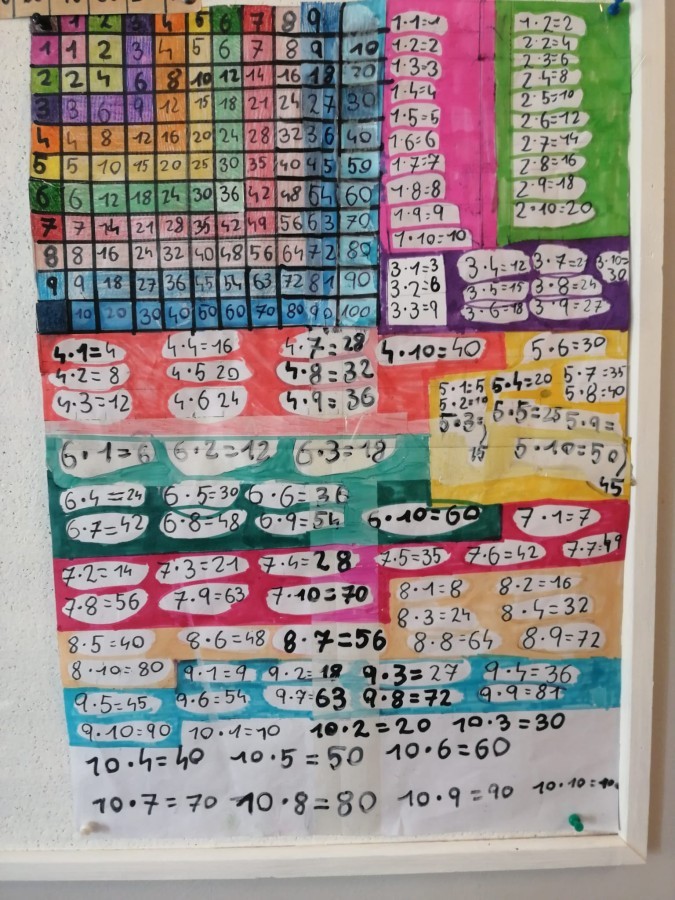 1 2 3 4 5 6 7 8 9
1 1 2 3 4 5 6 7 8 9 10
2 2 4 6 8 10 12 14 16 18 20
3 3 6 9 12 15 18 21 24 27 30
4 4 8 12 16 20 24 28 32 36 40
5 5 10 15 20 25 30 35 40 45 50
6 6 12 18 24 30 36 42 48 54 60
7 7 14 21 28 35 42 49 56 63 70
8 8 16 24 32 40 48 56 64 72 80
9 9 18 27 36 45 54 63 72 81 90
10 20 30 40 50 60 70 80 90 100
1·1=1
1·2=2
1·3=3
1·4=4
1·5=5
1·6=6
1·7=7
1·8=8
1·9=9
1·10=10
1·2=2
2·2=4
2·3=6
2·4=8
2·5=10
2·6=12
2·7=14
2·8=16
2·9=18
2·10=20
3·1=3 3·4=12 3·7=21 3·10=
30
3·2=6 3·5=15 3·8=24
3·3=9 3·6=18 3·9=27
4·1=4 4·4=16 4·7=28 4·10=40
4·2=8 4·5 20 4·8=32
4·3=12 4·6 24 4·9=36
5·6=30
5·1=5 5·4=20 5·7=35
5·2=10 5·8=40
5·3= 5·5=25 5·9=
15 5·10=50
45
6·1=6 6·2=12 6·3=18
6·4=24 6·5=30 6·6=36
6·7=42 6·8=48 6·9=54 6·10=60 7·1=7
7·2=14 7·3=21 7·4=28 7·5=35 7·6=42 7·7=49
7·8=56 7·9=63 7·10=70
8·1=8 8·2=16
8·3=24 8·4=32
8·5=40 8·6=48 8·7=56 8·8=64 8·9=72
8·10=80 9·1=9 9·2=18 9·3=27 9·4=36
9·5=45 9·6=54 9·7=63 9·8=72 9·9=81
9·10=90 10·1=10 10·2=20 10·3=30
10·4=40 10·5=50 10·6=60
10·7=70 10·8=80 10·9=90 10·10=